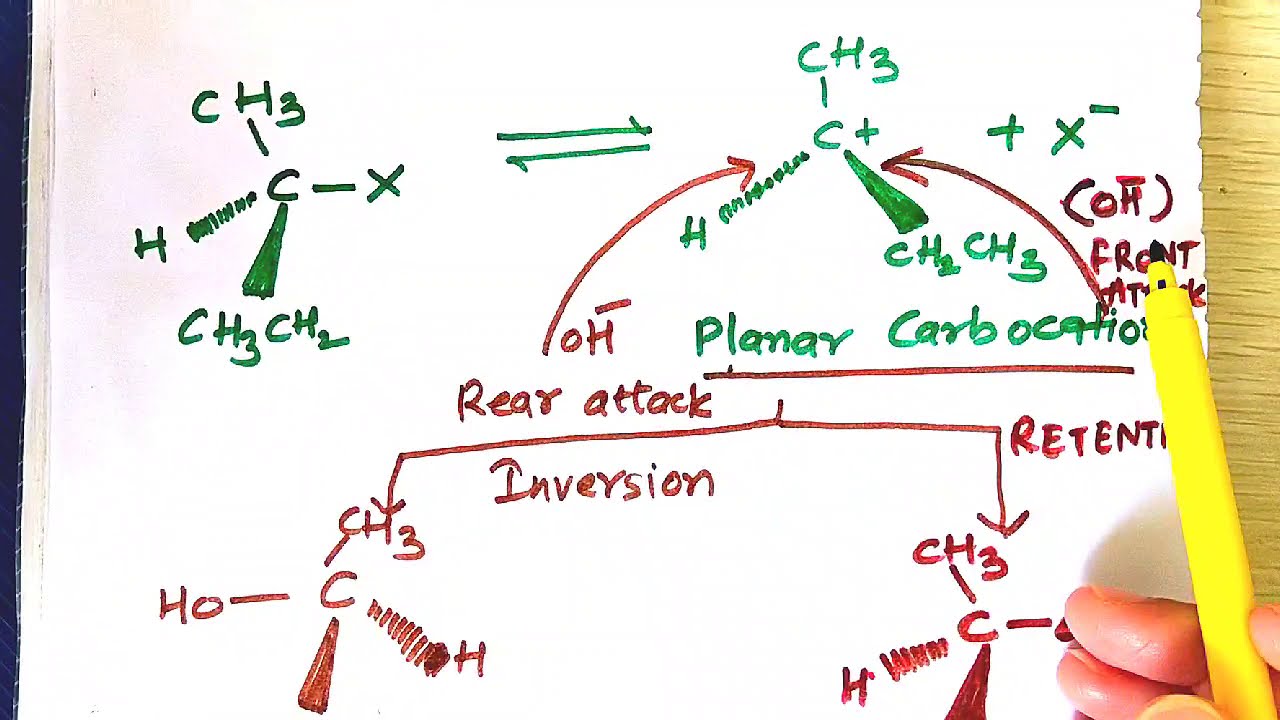 CH3
C — X
H
CH3CH2
CH3
C+
+ X⁻
H
CH2CH3
(OH⁻)
FRONT
Attack
OH⁻
Planar Carbocation
Rear attack
Inversion
RETENTI
CH3
HO — C
H
CH3
C —
H